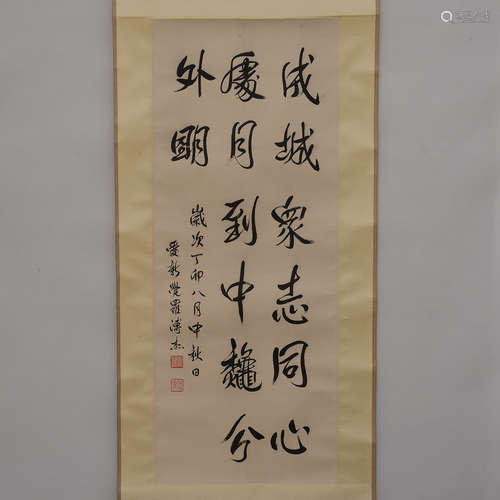 成城衆志同心
處月到中龝分
外朙
歲次丁卯八月中秋日
愛新覺羅溥杰